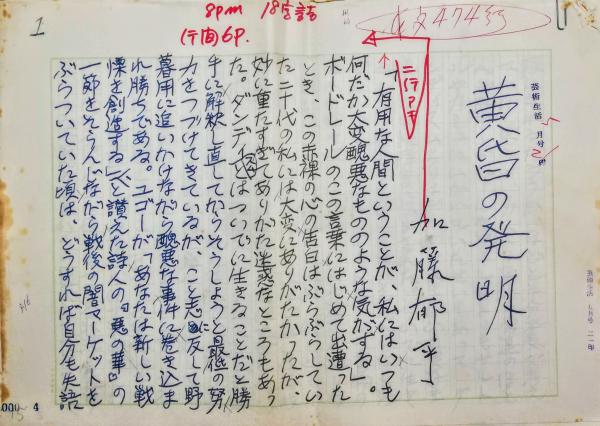 黄昏の発明
加藤郁乎
「有用な人間ということが、私にはいつも
何だか大変醜悪なもののような気がする」。
ボードレールのこの言葉にはじめて出遭った
とき、この赤裸の心の告白はぶらぶらしてい
た二十代の私には大変にありがたかったが、
妙に重たすぎてありがた迷惑なところもあっ
た。ダンディとはついでに生きることだと勝
手に解釈し直してからそうしようと最低の努
力をつづけてきているが、こと志に反して野
暮用に追いかけながら醜悪な事件に巻き込ま
れ勝ちである。ユゴーが「あなたは新しい戦
慄を創造する」と讃えた詩人の『悪の華』の
一節をそらんじながら戦後の闇マーケットを
ぶらついていた頃は、どうすれば自分も失語
8pm 18字詰
(行間)6p.
474行
二行アキ
芸術生活
月号
芸術生活
1
4